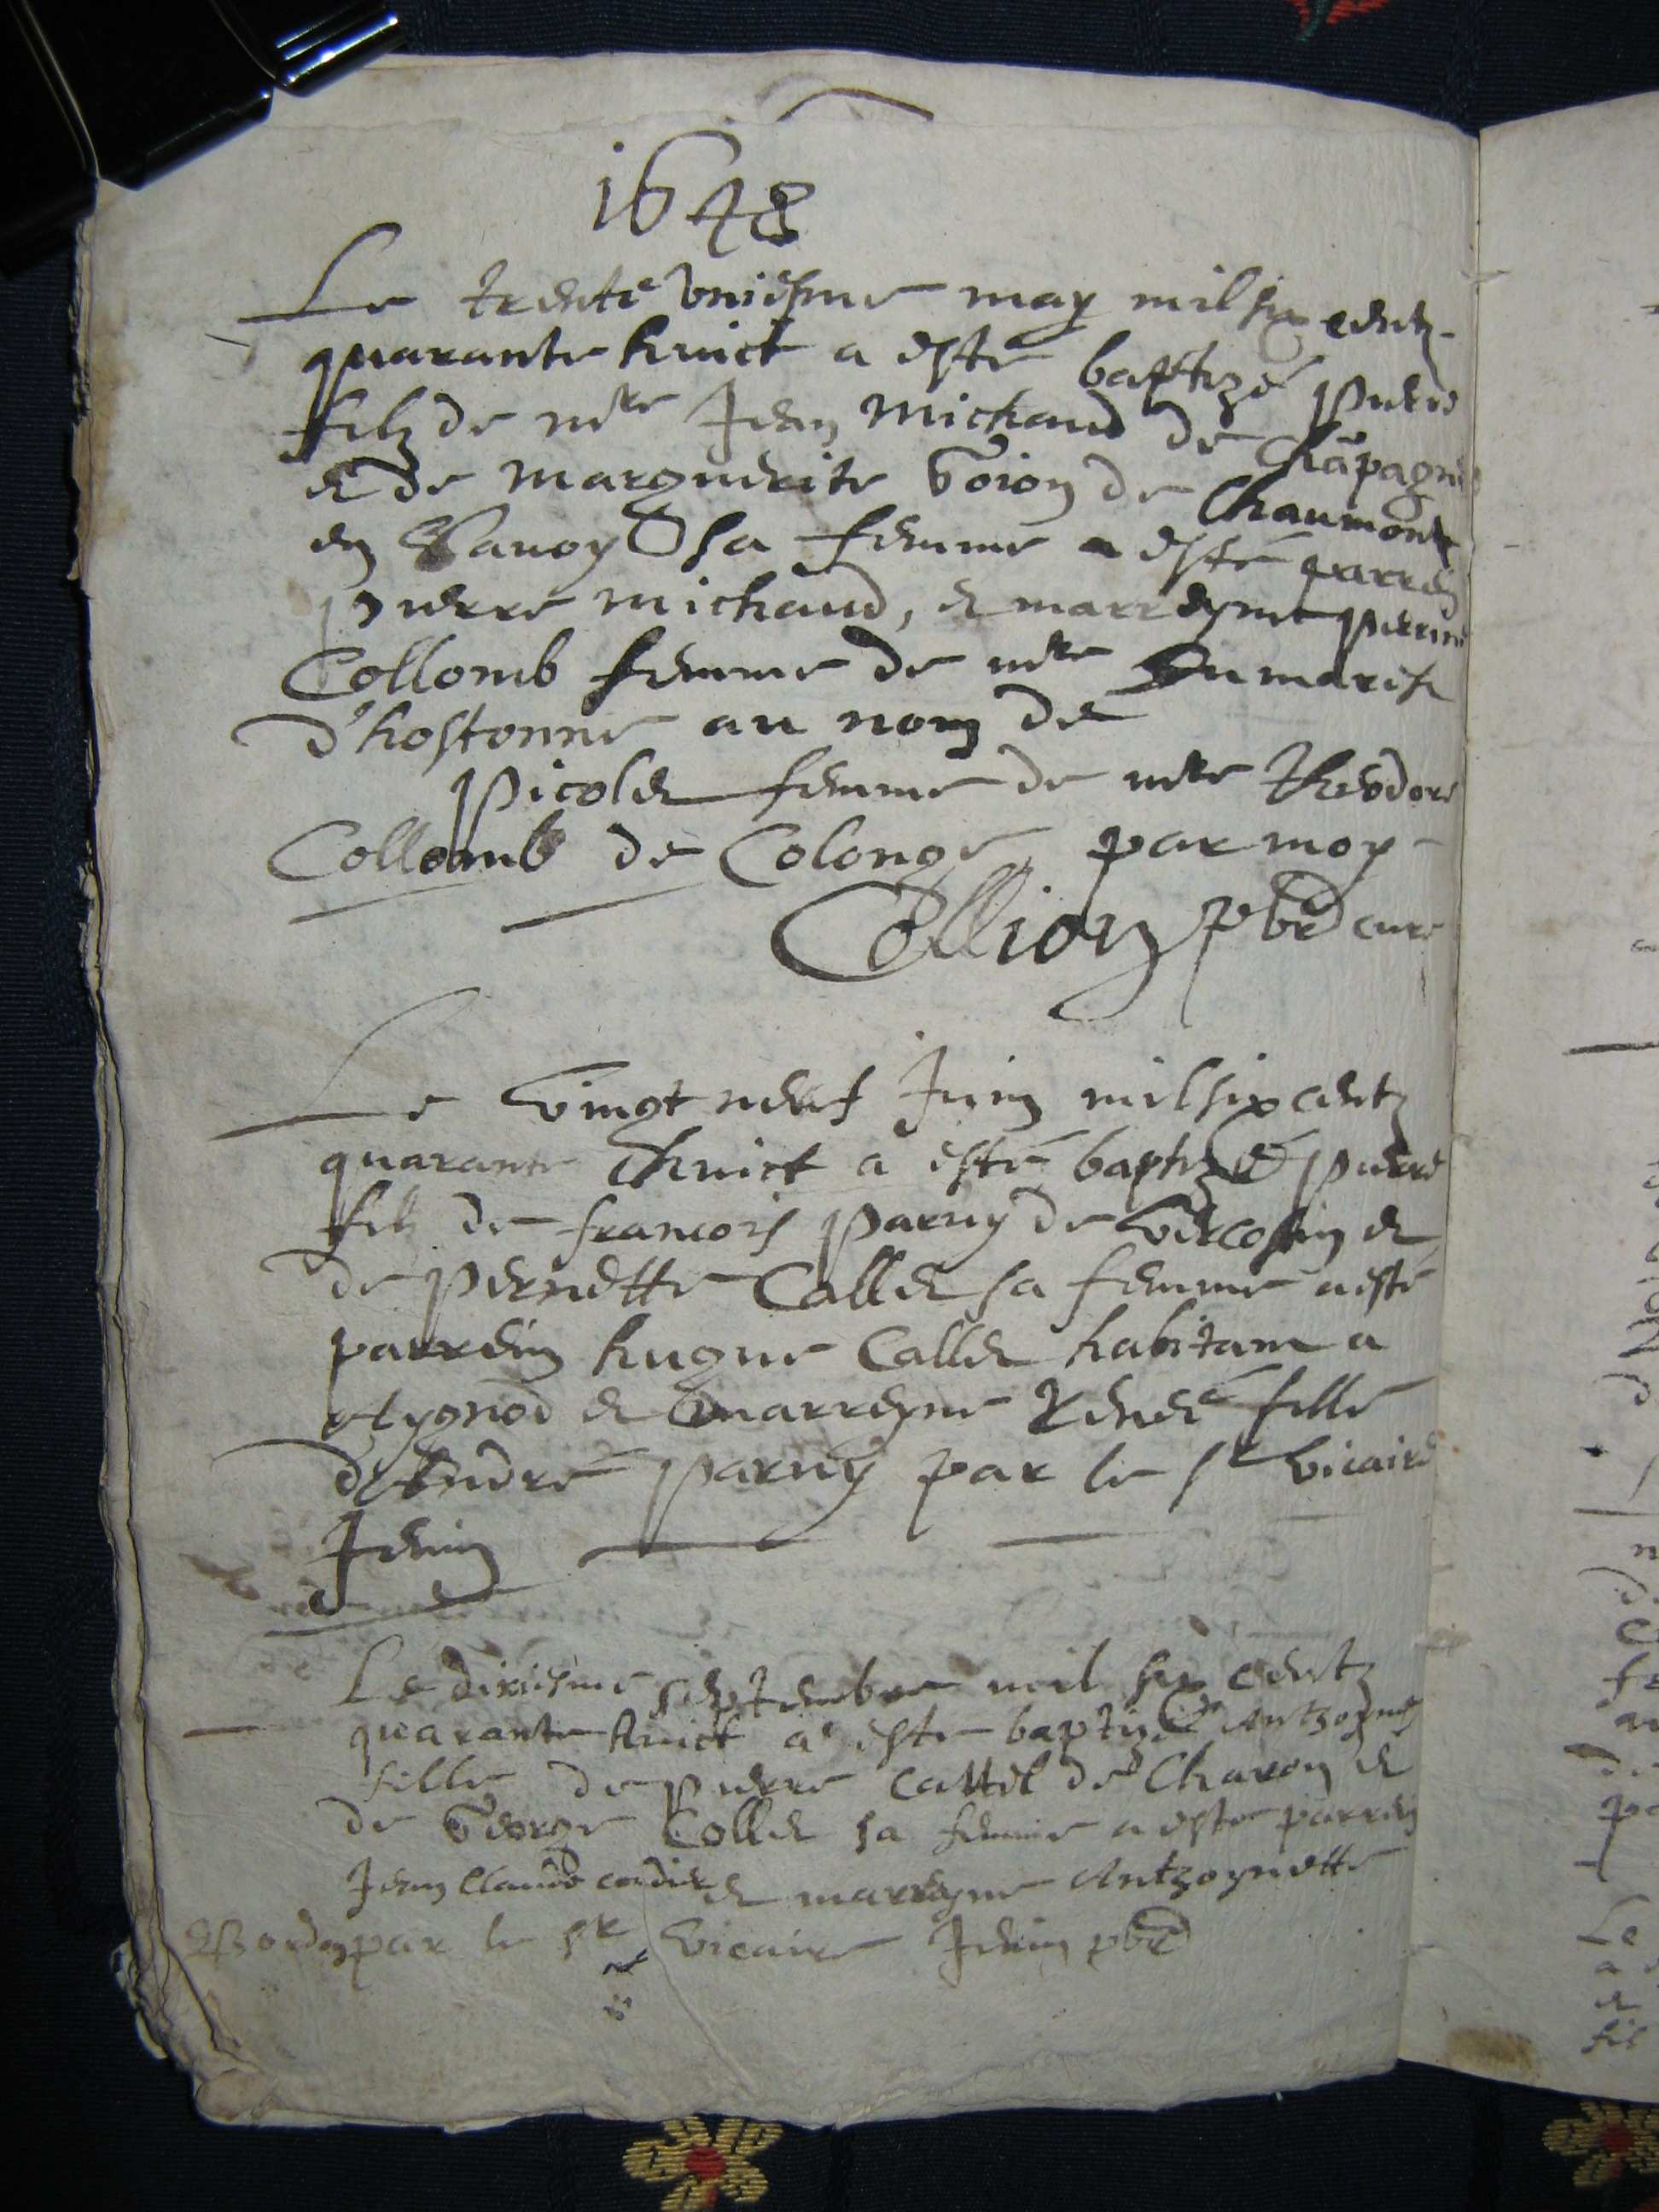 1648
Le trente uniesme may mil six centz
quarante huict a esté baptizé pierre
filz de mre Jean Michaud de Chãpagne
et de marguerite Voion de Chaumont
en Savoye sa femme a esté parrein
pierre michaud, et marreyne perrine
Collomb femme de mre Dumarest
d'hostonne au nom de
picolet femme de mre theodore
Collomb de Colonge, par moy
Collion pbre curé
Le vingt neuf Juin mil six centz
quarante huict a esté baptizé pierre
filz de francois parny de Vercosin et
de pernette Callet sa femme a esté
parrein hugue Callet habitant a
Aygnod et marreyne Renee fille
d'Andre parny par le sr vicaire
Jenin
Le dixiesme septembre mil six centz
quarante huict a esté baptizé Antzoyne
fille de pierre Cattil de Charon et
de George Collet sa femme a esté parrein
Jean Claude cordier et marreyne Antzoynette
par le sr vicaire Jenin pbre